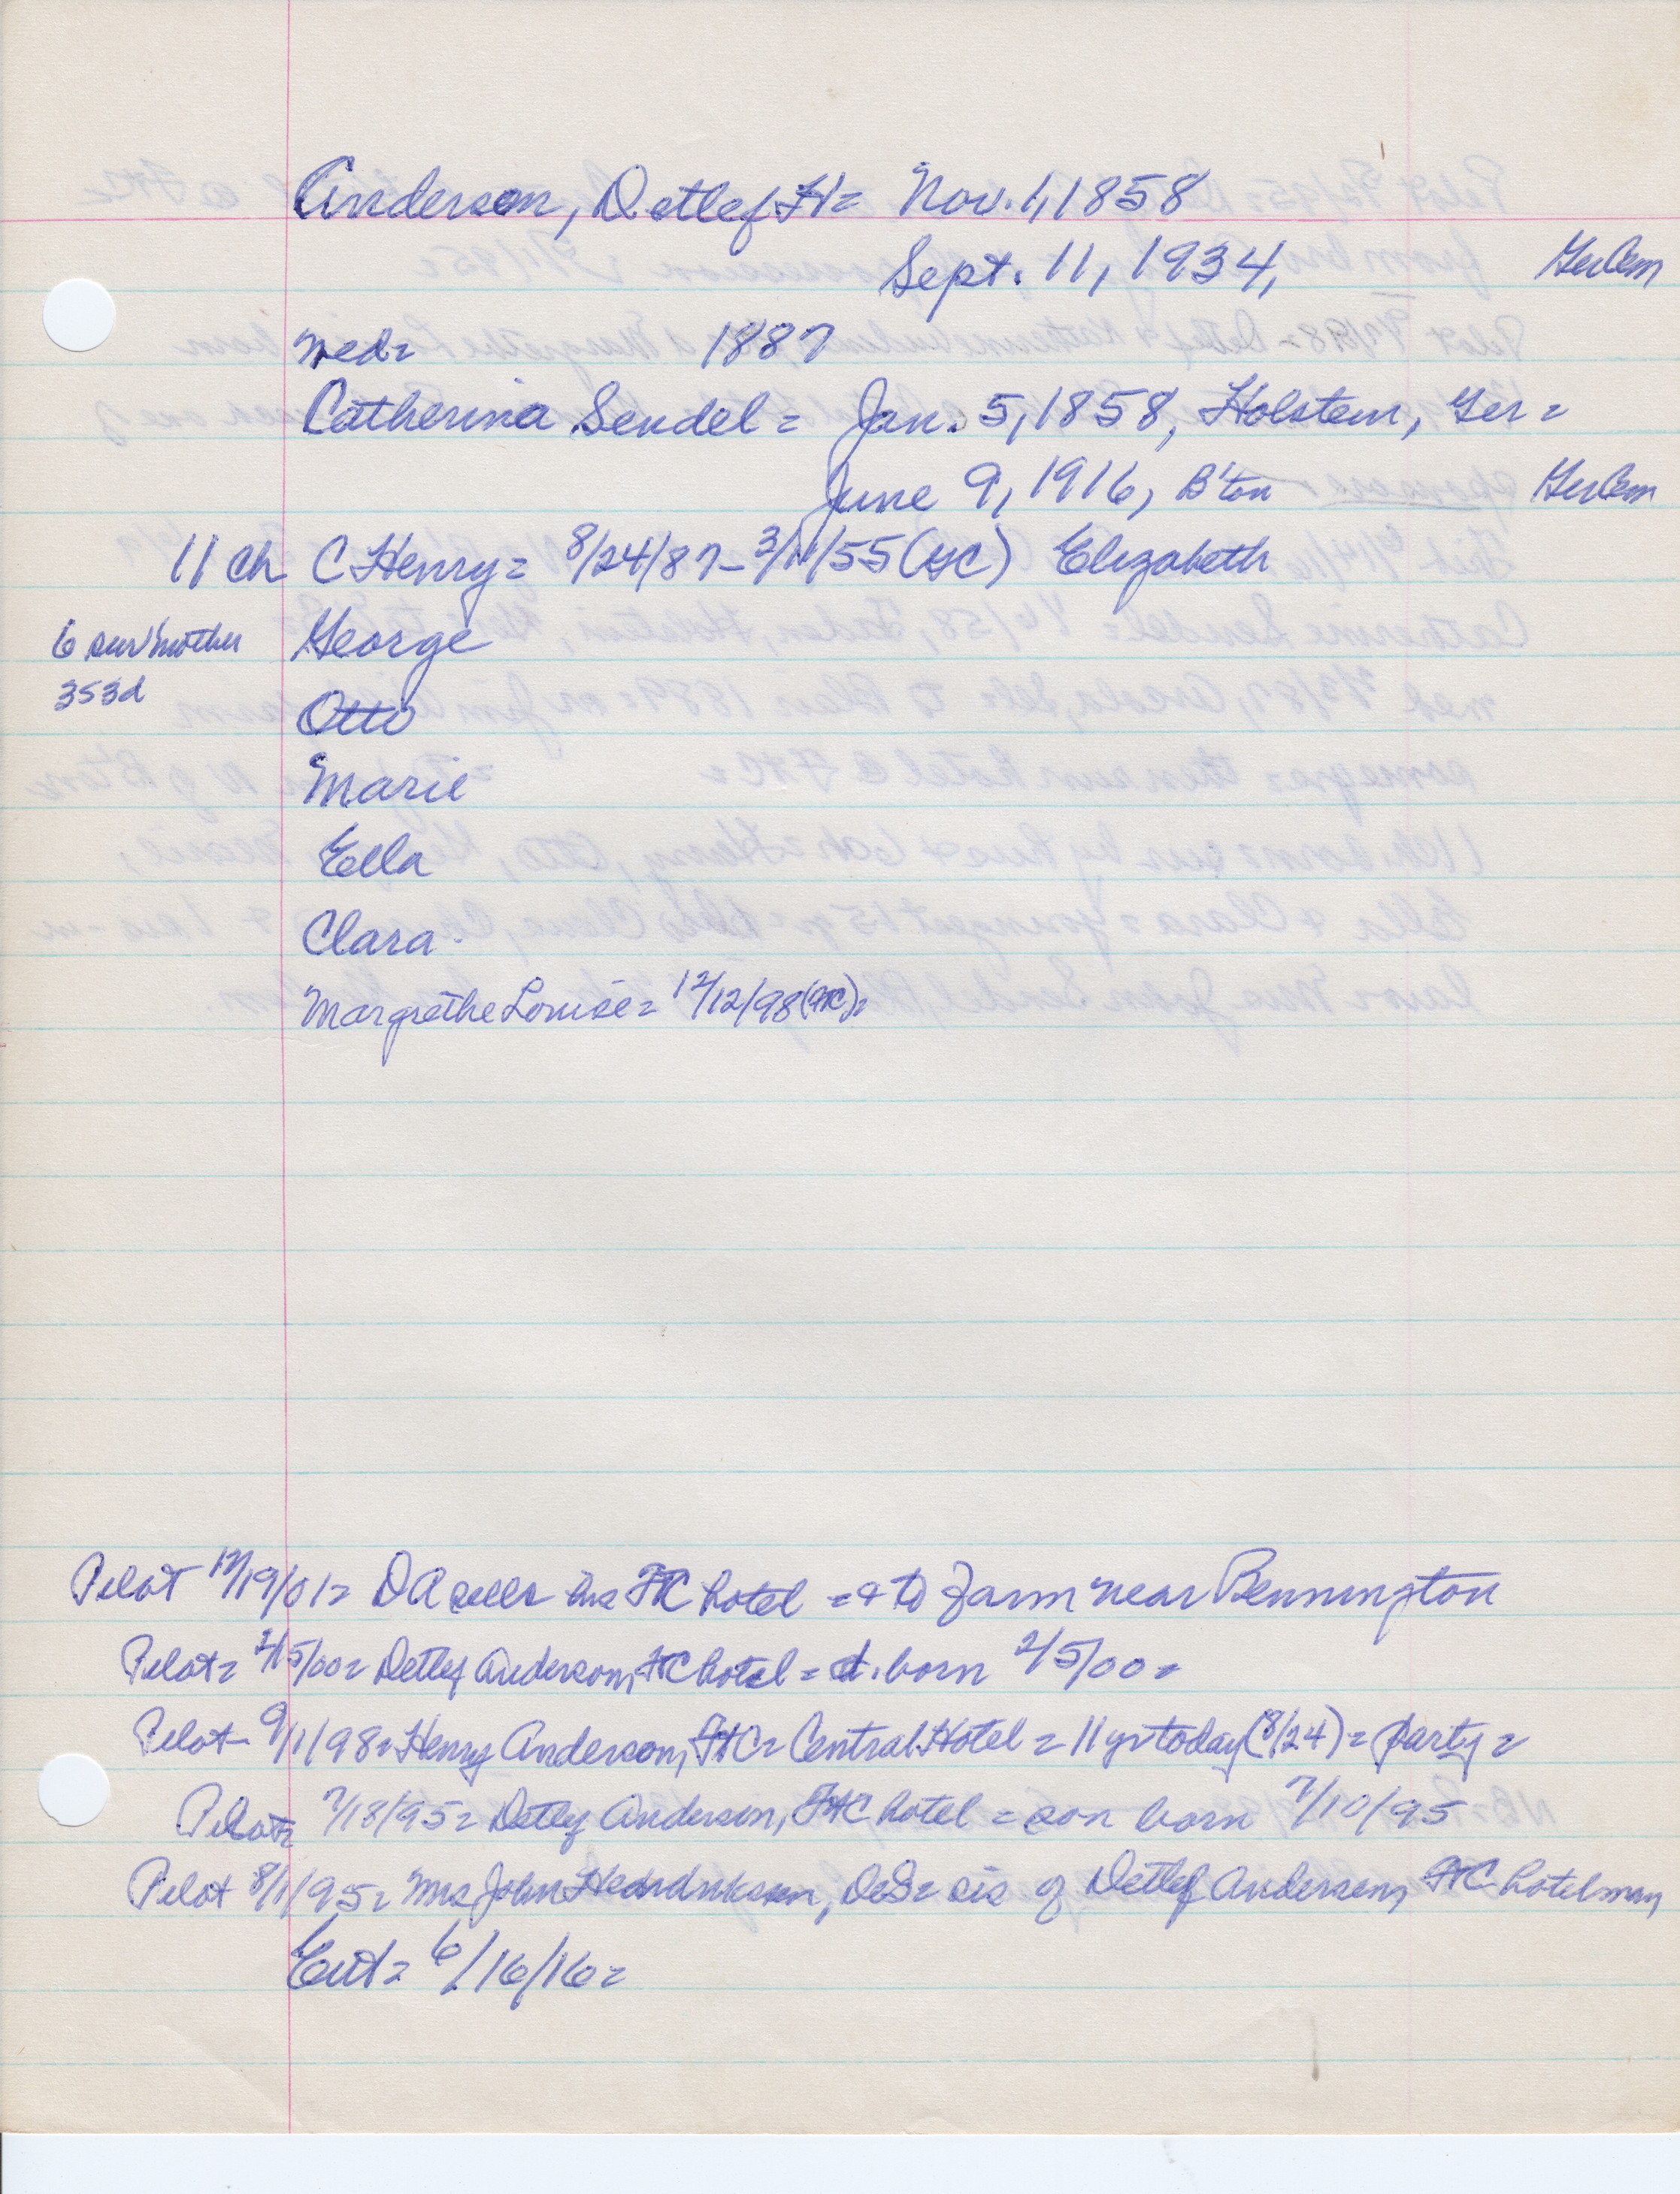 Anderson, Detlef H= Nov. 1, 1858
Sept. 11, 1934, GerCem
wed= 1887
Catherina Sendel = Jan. 5, 1858, Holstein, Ger =
June 9, 1916, B'ton GerCem
11 ch C Henry= 8/24/87- 3/11/55 (GC) Elizabeth
6 surv mother George
3s3d Otto
Marie
Ella
Clara
Margrethe Louise= 12/12/98 (FtC)=
Pilot 12/19/01= DA sells his FtC hotel = & to farm near Bennington
Pilot= 2/15/00= Detlef Anderson, FtC hotel = d. born 2/5/00=
Pilot 9/1/98= Henry Anderson, FtC= Central Hotel = 11 yr today (8/24) = party =
Pilot= 7/18/95= Detlef Anderson, FtC hotel = son born 7/10/95
Pilot 8/1/95= Mrs John Hendrikson, DeS= sis of Detlef Anderson, FtC hotelman
Ent= 6/16/16=